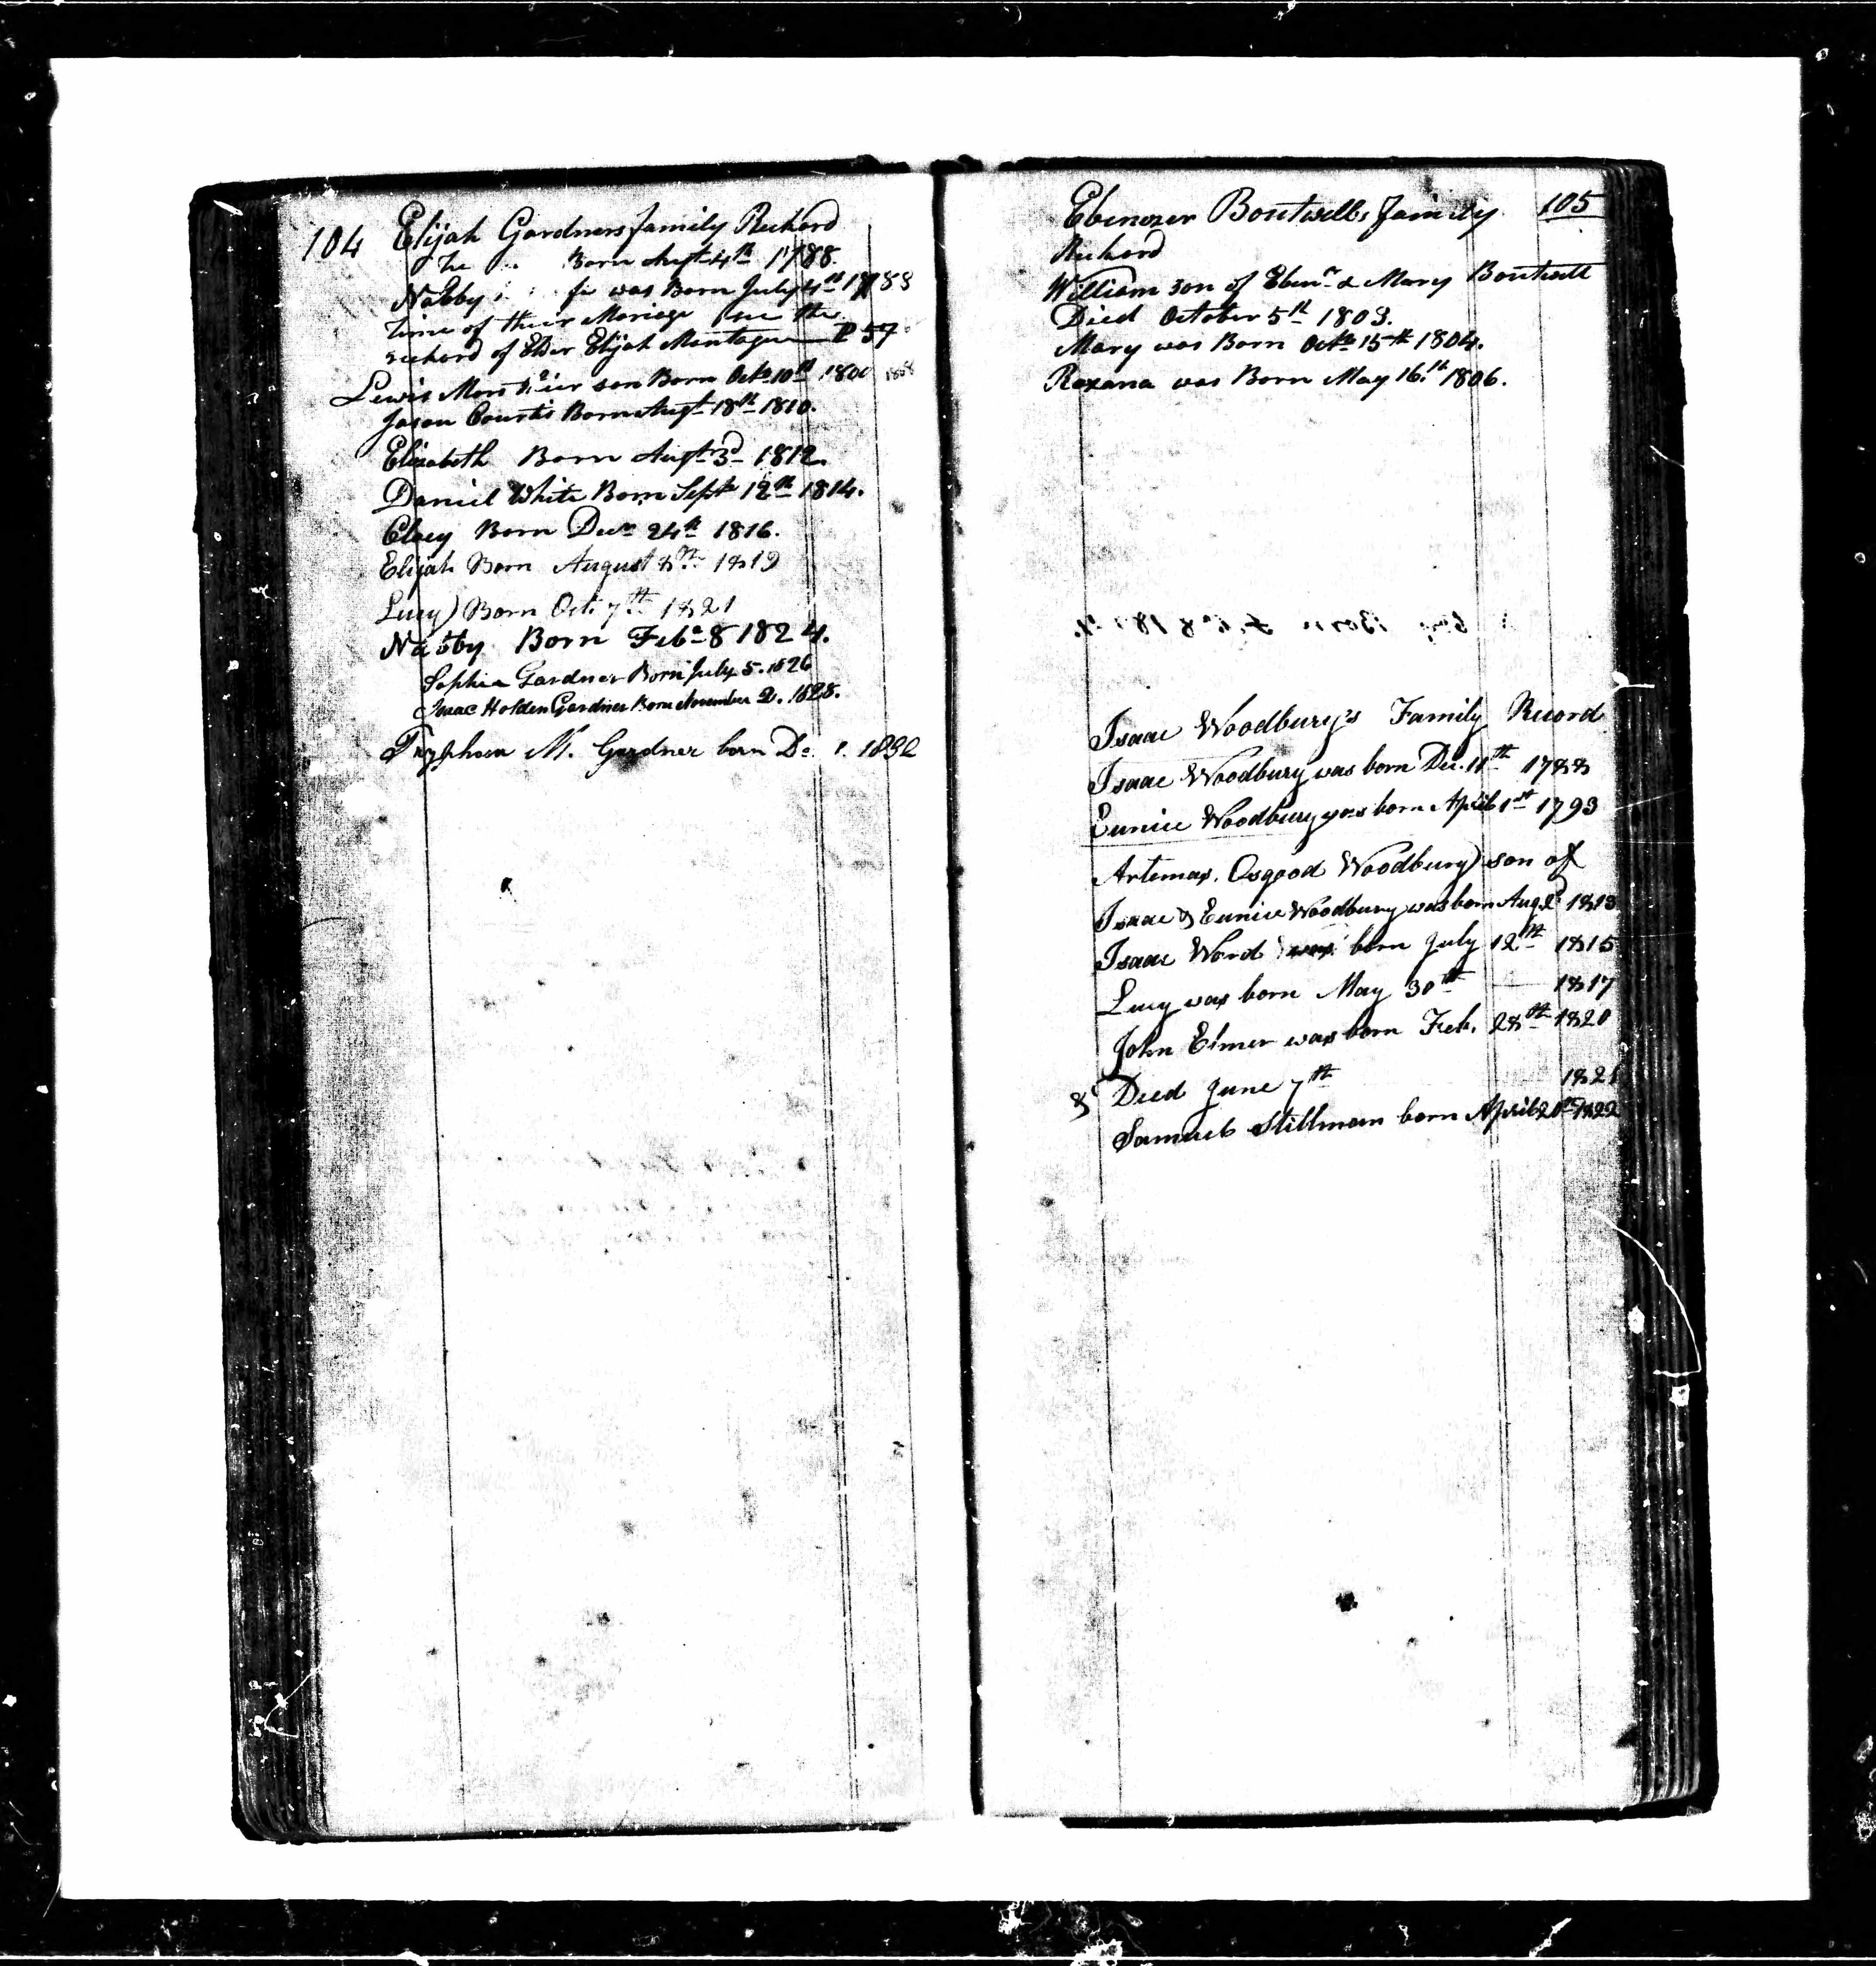 104
Elijah Gardners family Rickord
he Born Augt 4th 1788
Nabby was Born July 4th 1788
time of their Mariege see the
rickord of Elder Elijah Montague P 57
Lewis their son Born Octo 10th 1808
Jason Courtis Born Augt 18th 1810.
Elizabeth Born Augt 3d 1812.
Daniel White Born Septr 12th 1814.
Born Decr 24th 1816.
Elijah Born August 8th 1819
Lucy Born Oct. 7th 1821
Nabby Born Feba 8 1824.
Sophia Gardner Born July 5. 1826
Isaac Holden Gardner Born November 2. 1828.
M. Gardner born 1. 1832
105
Ebenezer Boutwells family
Rickord
William son of Ebenr & Mary Boutwell
Died October 5th 1803.
Mary was Born Octo 15th 1804.
Roxana was Born May 16.th 1806.
Isaac Woodbury's Family Record
Isaac Woodbury was born Dec. 11th 1788
Eunice Woodbury was born April 1st 1793
Artemas Osgood Woodbury son of
Isaac & Eunice Woodbury was born Aug. 2d 1813
Isaac Ward was born July 12th 1815
Lucy was born May 30th 1817
John Elmer was born Feb. 28th 1820
& Died June 7th 1821
Samuel Stillman born April 20th 1822